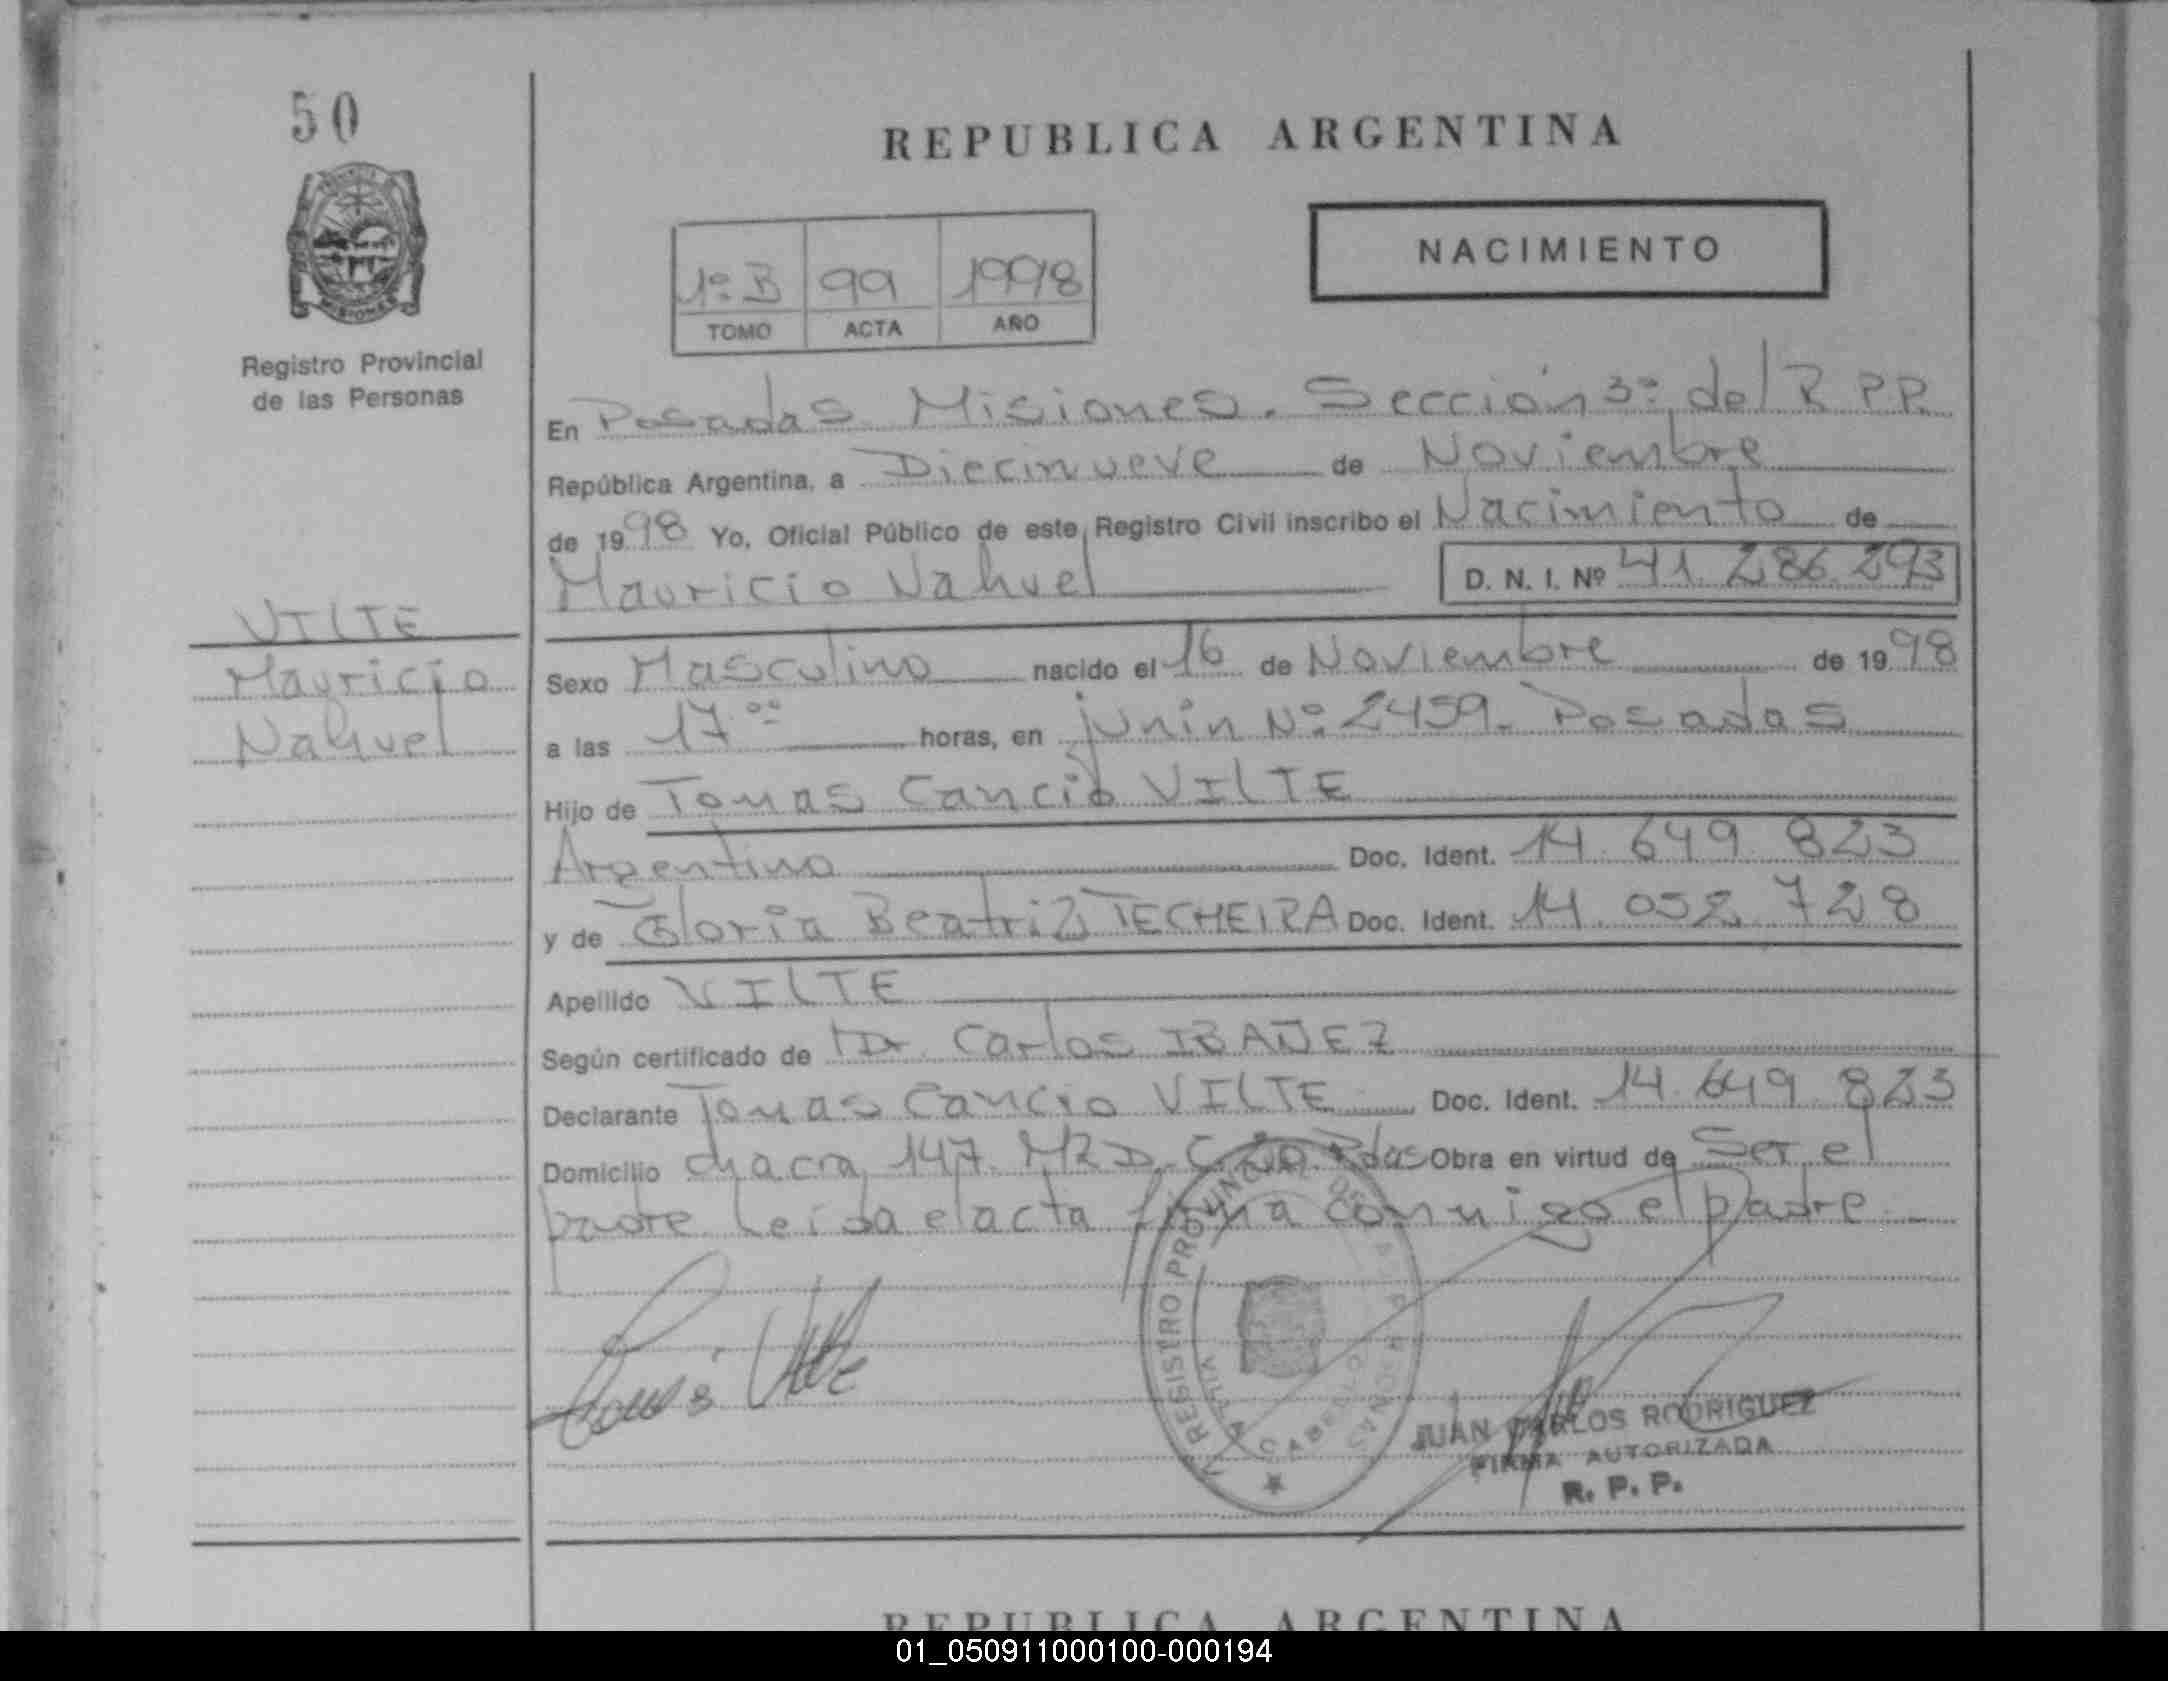 50
REPUBLICA ARGENTINA
NACIMIENTO
1º B 99 1998
TOMO ACTA AÑO
Registro Provincial
de las Personas
En Posadas Misiones. Sección 3º del R.P.P.
República Argentina, a Diecinueve de Noviembre
de 1998 Yo, Oficial Público de este Registro Civil inscribo el Nacimiento de
Mauricio Nahuel D. N. I. Nº 41.286.293
VILTE
Mauricio
Nahuel
Sexo Masculino nacido el 16 de Noviembre de 1998
a las 17.00 horas, en junin Nº 2459. Posadas
Hijo de Tomas Cancio VILTE
Argentino Doc. Ident. 14.649.823
y de Gloria Beatriz TECHEIRA Doc. Ident. 14.052.728
Apellido VILTE
Según certificado de Dr. Carlos IBAÑEZ
Declarante Tomas Cancio VILTE Doc. Ident. 14.649.823
Domicilio chacra 147. Pdas Obra en virtud de Ser el
padre Leida el acta firma conmigo el padre
REGISTRO PROVINCIAL DE LAS PERSONAS
JUAN CARLOS RODRIGUEZ
FIRMA AUTORIZADA
R. P. P.
REPUBLICA ARGENTINA
01_050911000100-000194